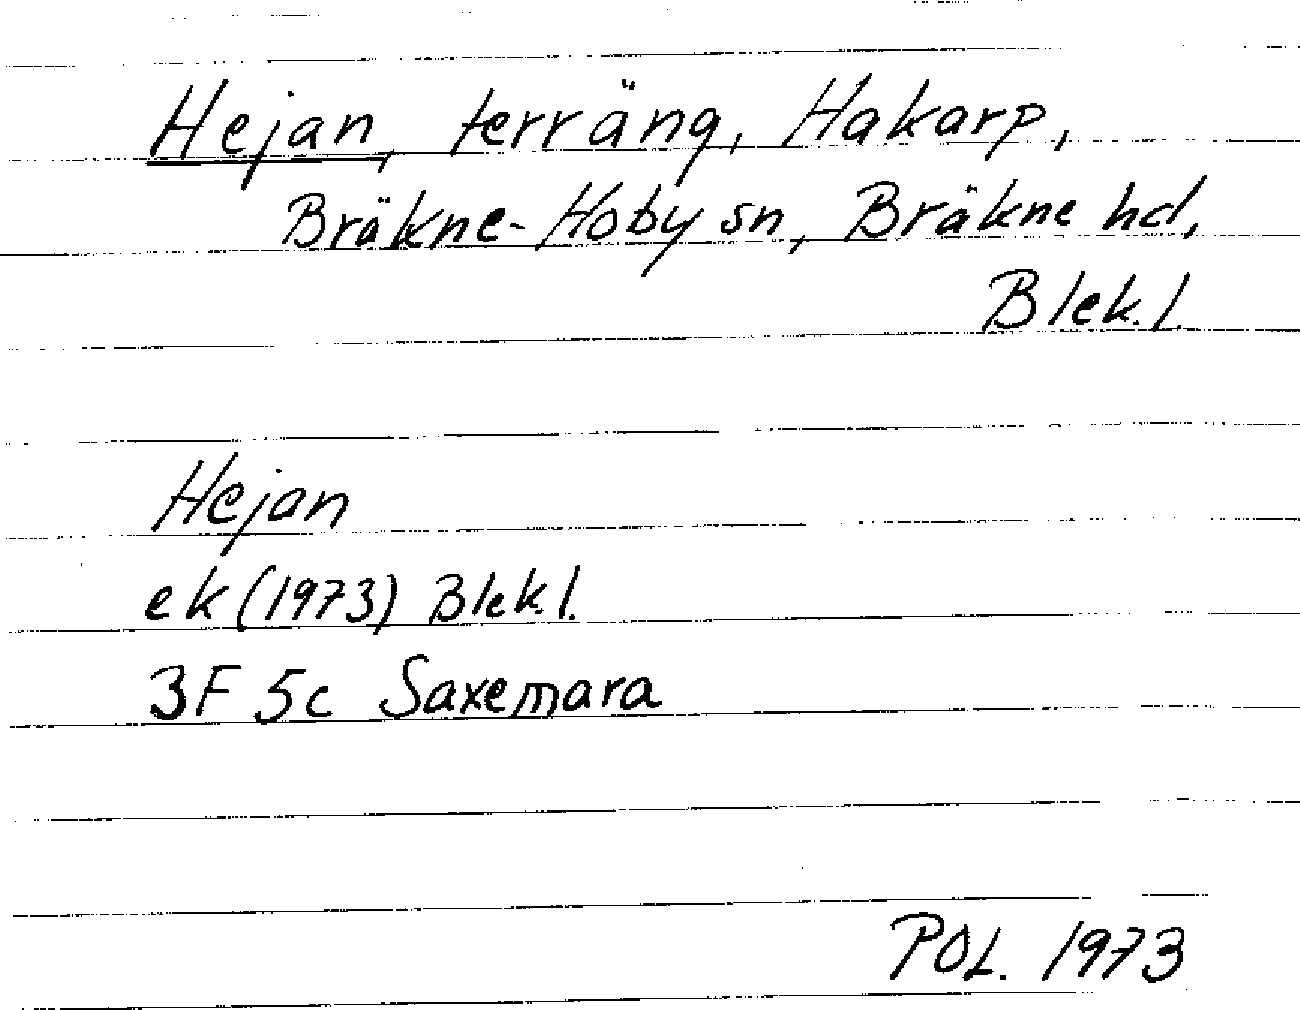 Hejan, terräng, Hakarp,
Bräkne-Hoby sn, Bräkne hd,
Blek. l.
Hejan
ek (1973) Blek. l.
3F 5c Saxemara
POL. 1973